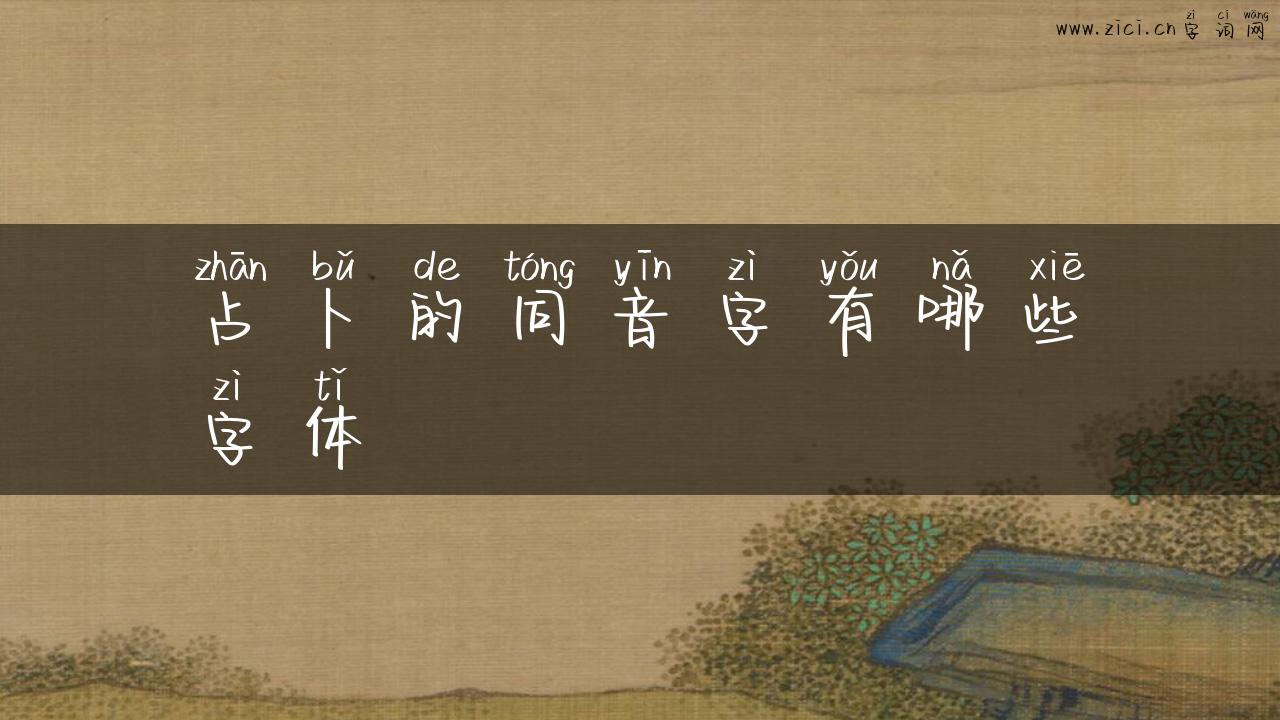 zì cí wǎng
www.zici.cn 字 词 网
zhān bǔ de tóng yīn zì yǒu nǎ xiē
占 卜 的 同 音 字 有 哪 些
zì tǐ
字 体